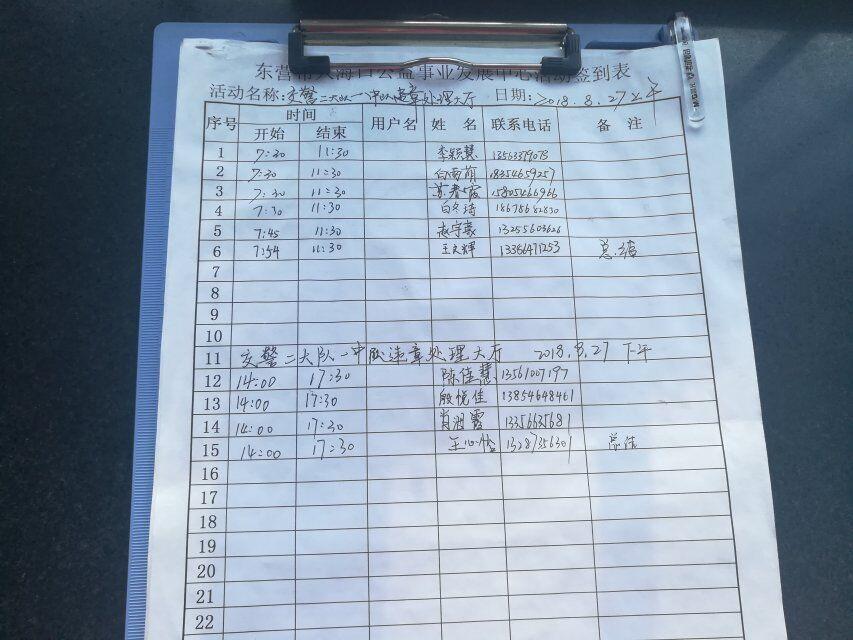 东营市入海口公益事业发展中心活动签到表
活动名称:交警二大队一中队违章处理大厅 日期:2018.8.27上午
序号 时间 用户名 姓 名 联系电话 备 注
开始 结束
1 7:30 11:30 李颖慧 13563379073
2 7:30 11:30 白雪萌 18354659257
3 7:30 11:30 苏春霞 15805466966
4 7:30 11:30 白冬琦 18678682830
5 7:45 11:30 赵宇豪 13255603626
6 7:54 11:30 王文辉 13366471253 总结
7
8
9
10
11 交警二大队一中队违章处理大厅 2018.8.27 下午
12 14:00 17:30 陈佳慧 13561007197
13 14:00 17:30 殷悦佳 13854648461
14 14:00 17:30 肖湘霞 13356635681
15 14:00 17:30 王心怡 13287356301 总结
16
17
18
19
20
21
22